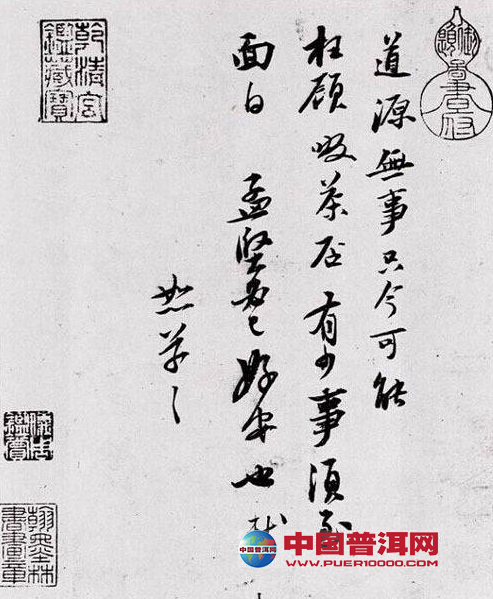 道源無事只今可能
枉顧啜茶否有少事須至
面白 孟堅必已好安也軾
恕草草
乾清宮
鑑藏寶
儀周
鑑賞
翰墨林
書畫章
中国普洱网
WWW.PUER10000.COM